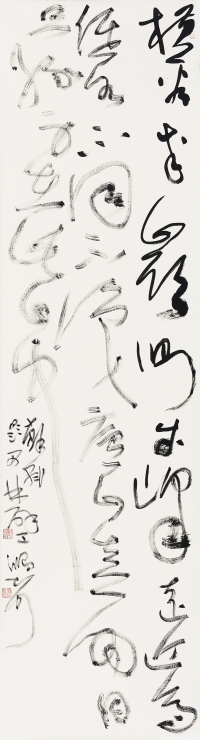 横看成嶺側成峰遠近高
低各不同不識廬山真面目
只緣身在此山中
蘇軾
題西林壁